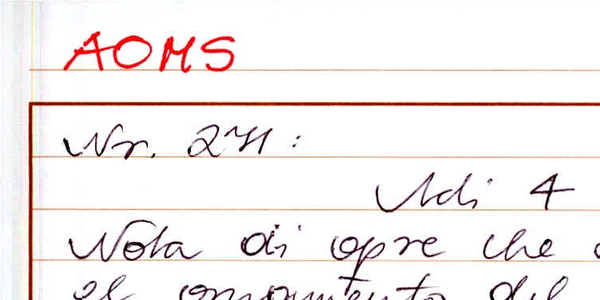 AOMS
Nr. 271:
Adi 4
Nota di opre che
el del